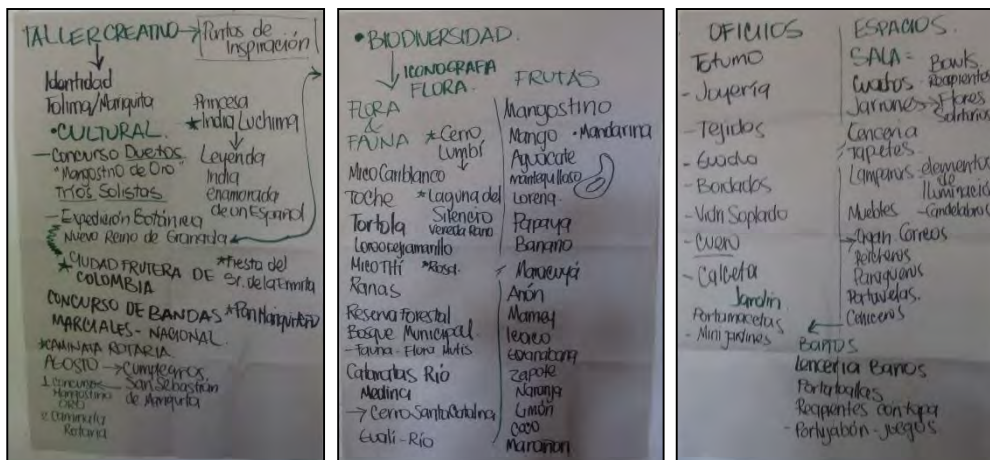 TALLER CREATIVO → Puntos de
Inspiración
Identidad
Tolima/Mariquita
Princesa
★ India Luchima
Leyenda
India
enamorada
de un Español
• CULTURAL.
- Concurso Duetos
"Mangostino de Oro"
Tríos Solistas
- Expedición Botánica
Nuevo Reino de Granada
★ CIUDAD FRUTERA DE
COLOMBIA
★ Fiesta del
Sr. de la Ermita
CONCURSO DE BANDAS
MARCIALES - NACIONAL.
★ Pan Mariquiteño
★ CAMINATA ROTARIA
AGOSTO → Cumpleaños
San Sebastián
de Mariquita
1. Concurso
Mangostino
ORO
2. Caminata
Rotaria
• BIODIVERSIDAD.
ICONOGRAFIA
FLORA.
FLORA
&
FAUNA
★ Cerro
Lumbí
Mico Cariblanco
Toche
★ Laguna del
Silencio
Vereda Rano
Tortola
Loro cejiamarillo
Mico Tití
Ranas
Reserva Forestal
Bosque Municipal.
- Fauna - Flora Mutis
Cataratas Río
Medina
→ Cerro Santa Catalina
Gualí - Río
FRUTAS
Mangostino
Mango • Mandarina
Aguacate
Mantequilloso
Lorena
Papaya
Banano
Maracuyá
Anón
Mamey
Icaco
Guanabana
Zapote
Naranja
Limón
Coco
Marañon
OFICIOS
Totumo
- Joyería
- Tejidos
- Guadua
- Bordados
- Vidrio Soplado
- Cuero
- Calceta
Jardín
Portamacetas
- Mini jardines
ESPACIOS.
SALA = Bowls
Cuadros - Recipientes
Jarrones → Flores
Solitarios
Lencería
Tapetes.
Lámparas - elementos
de
Iluminación
Muebles - Candelabros
→ Organ. Correos
Percheros
Paragueros
Portavelas.
Ceniceros
BAÑOS
Lencería Baños
Portatoallas
Recipientes con tapa
- Portajabón - juegos